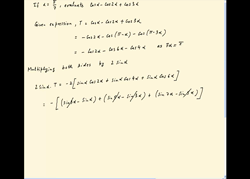 If α = π/7, evaluate cosα - cos2α + cos3α
Given expression, T = cosα - cos2α + cos3α
= -cos2α - cos(π-α) - cos(π-3α)
= -cos2α - cos6α - cos4α as 7α = π
Multiplying both sides by 2 sinα
2 sinα. T = -2[sinα cos2α + sinα cos4α + sinα cos6α]
= -[(sin3α - sinα) + (sin5α - sin3α) + (sin7α - sin5α)]